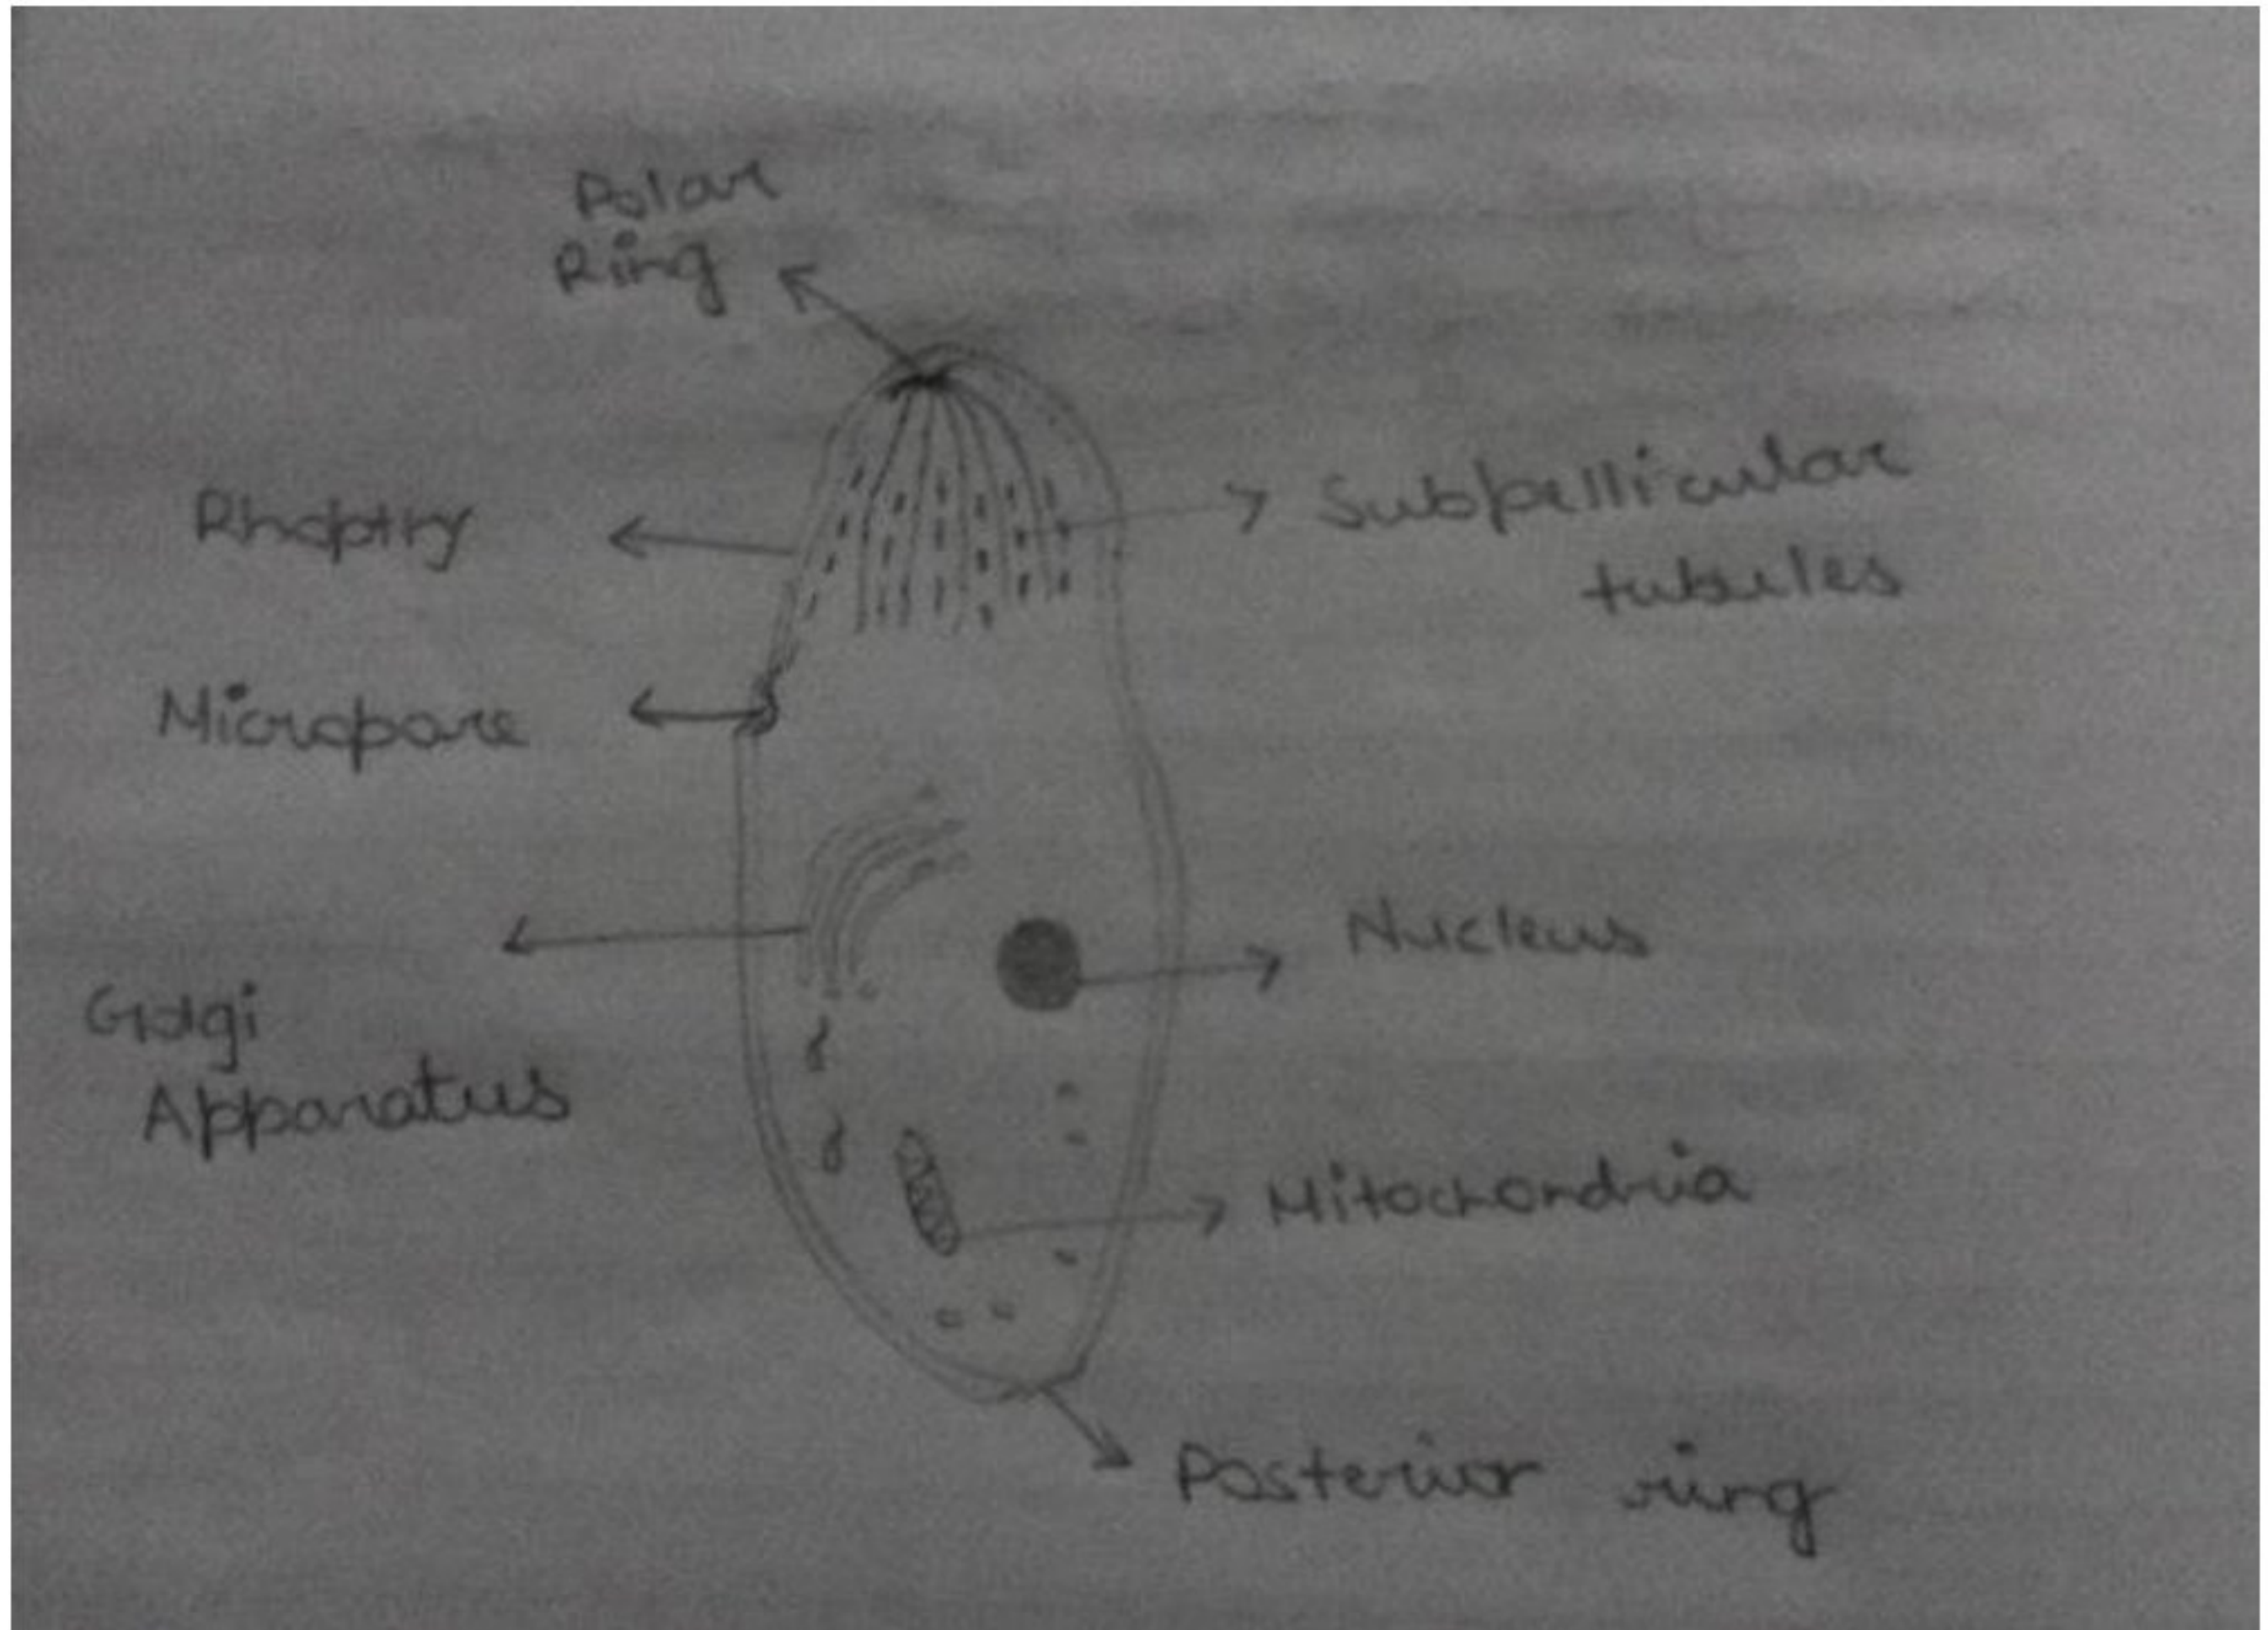 Polar
Ring
Rhoptry
Subpellicular
tubules
Micropore
Nucleus
Golgi
Apparatus
Mitochondria
Posterior ring